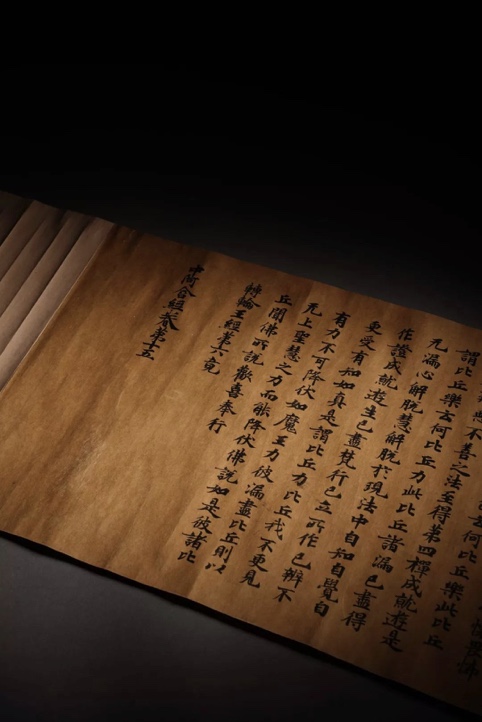 云何比丘樂此比丘
不善之法至得第四禪成就遊是
謂比丘樂云何比丘力此比丘諸漏已盡得
无漏心解脫慧解脫於現法中自知自覺自
作證成就遊生已盡梵行已立所作已辦不
更受有知如真是謂比丘力比丘我不更見
有力不可降伏如魔王力彼漏盡比丘則以
无上聖慧之力而能降伏佛說如是彼諸比
丘聞佛所說歡喜奉行
轉輪王經第六竟
中阿含經卷第十五